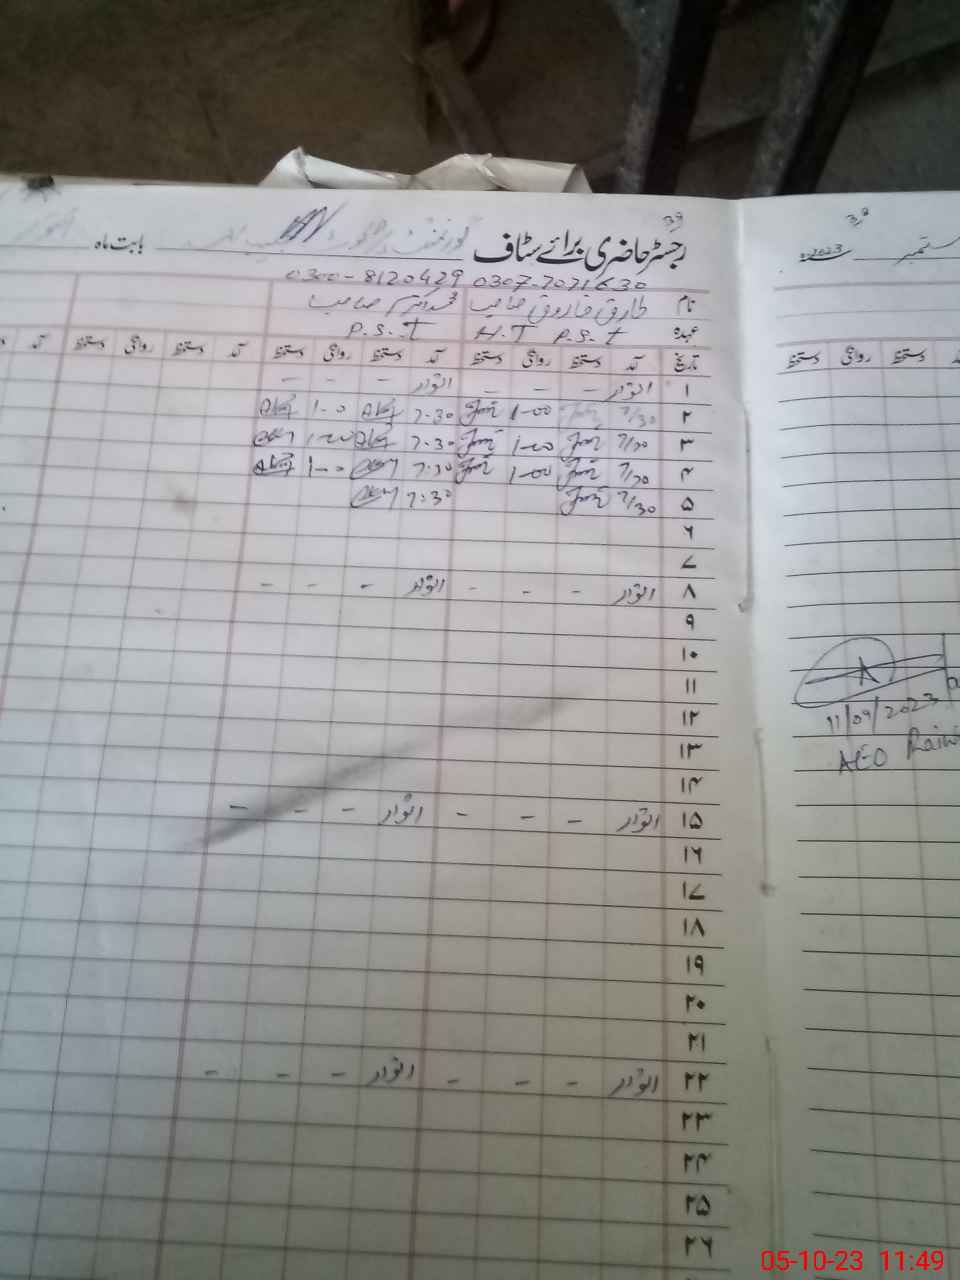 39
رجسٹر حاضری برائے سٹاف گورنمنٹ بابت ماہ
0300-8120429 0307-7071630
نام طارق فاروق صاحب محمد اکرم صاحب
عہدہ P.S.T H.T P.S.T
تاریخ آمد دستخط روانگی دستخط آمد دستخط روانگی دستخط آمد دستخط روانگی دستخط آمد
۱ اتوار - - - اتوار - - -
۲ 7/30 1-00 7.30 1-0
۳ 7/30 1-00 7.30 1-00
۴ 7/30 1-00 7:30 1-0
۵ 7/30 7:30
۶
۷
۸ اتوار - - - اتوار - - -
۹
۱۰
۱۱
۱۲
۱۳
۱۴
۱۵ اتوار - - - اتوار - - -
۱۶
۱۷
۱۸
۱۹
۲۰
۲۱
۲۲ اتوار - - - اتوار - - -
۲۳
۲۴
۲۵
۲۶
ستمبر 2023
دستخط روانگی دستخط
11/09/2023
AEO
05-10-23 11:49